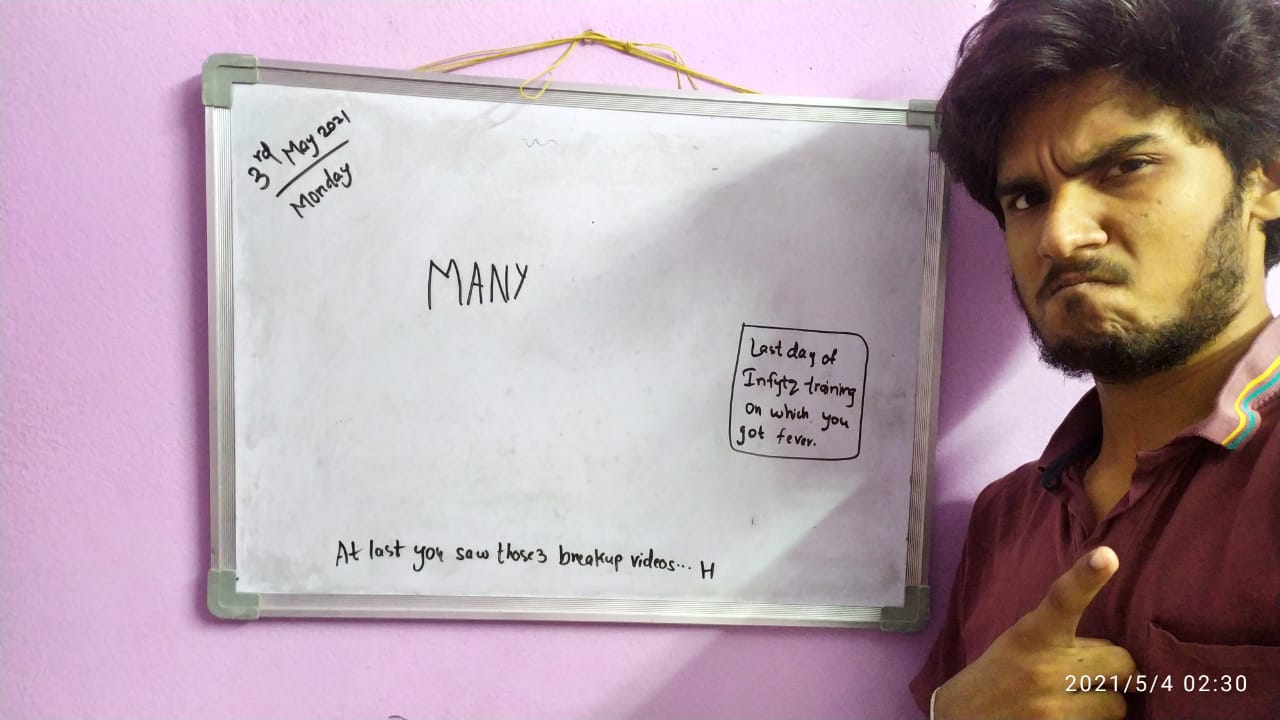 3rd May 2021
Monday
MANY
Last day of
Infytq training
on which you
got fever.
At last you saw those 3 breakup videos... H
2021/5/4 02:30